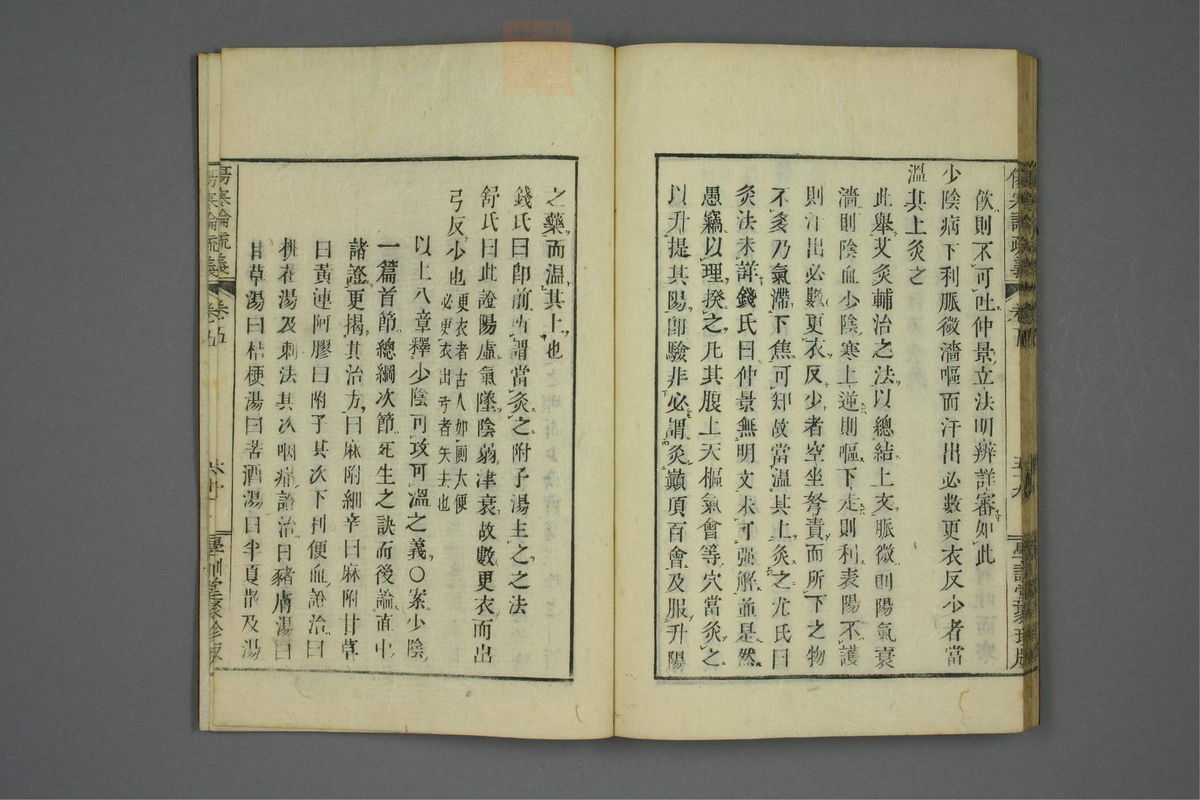 飲則不可吐仲景立法明辨詳審如此
少陰病下利脈微濇嘔而汗出必數更衣反少者當
溫其上灸之
此舉艾灸輔治之法以總結上文脈微則陽氣衰
濇則陰血少陰寒上逆則嘔下走則利表陽不護
則汗出必數更衣反少者空坐努責而所下之物
不多乃氣滯下焦可知故當溫其上灸之尤氏曰
灸法未詳錢氏曰仲景無明文未可强解並是然
愚竊以理揆之凡其腹上天樞氣會等穴當灸之
以升提其陽卽驗非必謂灸巔頂百會及服升陽
之藥而溫其上也
錢氏曰卽前所謂當灸之附子湯主之之法
舒氏曰此證陽虛氣墜陰弱津衰故數更衣而出
弓反少也更衣者古人如厠大便
必更衣出弓者矢去也
以上八章釋少陰可攻可溫之義〇案少陰
一篇首節總綱次節死生之訣而後論直中
諸證更揭其治方曰麻附細辛曰麻附甘草
曰黃連阿膠曰附子其次下利便血證治曰
桃花湯及刺法其次咽痛證治曰豬膚湯曰
甘草湯曰桔梗湯曰苦酒湯曰半夏散及湯
傷寒論疏義
卷五
五十九
學訓堂聚珍版
傷寒論疏義
卷五
六十
學訓堂聚珍版